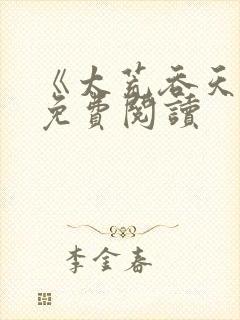 《大荒吞天
免費閱讀
李金春